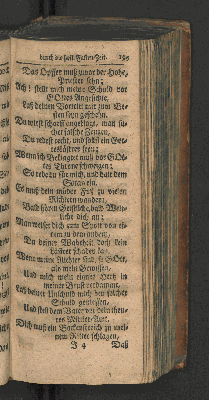 durch die heil. Fasten-Zeit. 195
Das Opffer muß zuvor der Hohe-
Priester sehn;
Ach! stellt mich meine Schuld vor
GOttes Angesichte,
Laß deinen Vortritt mir zum Be-
sten seyn geschehn.
Du wirst scharff angeklagt, man su-
chet falsche Zeugen,
Du redest recht, und ein Got-
teslästrer seyn;
Wenn ich Beklagter muß vor GOt-
tes Throne schweigen;
So rede du für mich, und halt dem
Satan ein.
Es muß dein müder Fuß zu vielen
Richtern wandern,
Bald hören Geistliche, bald Welt-
liche dich an;
Man weiset dich zum Spott von ei-
nem zu dem andern,
Da deiner Wahrheit doch kein
Lästrer schaden kan.
Wenn meine Richter sind, so GOtt,
als mein Gewissen,
Und mich mein eignes Hertz in
meiner Brust verdammt,
Laß deiner Unschuld mich bey solcher
Schuld geniessen,
Und still den Vater durch dein theu-
res Mittler-Amt.
Dich muß ein Backenstreich zu mei-
nem Retter schlagen,
J 4 Daß